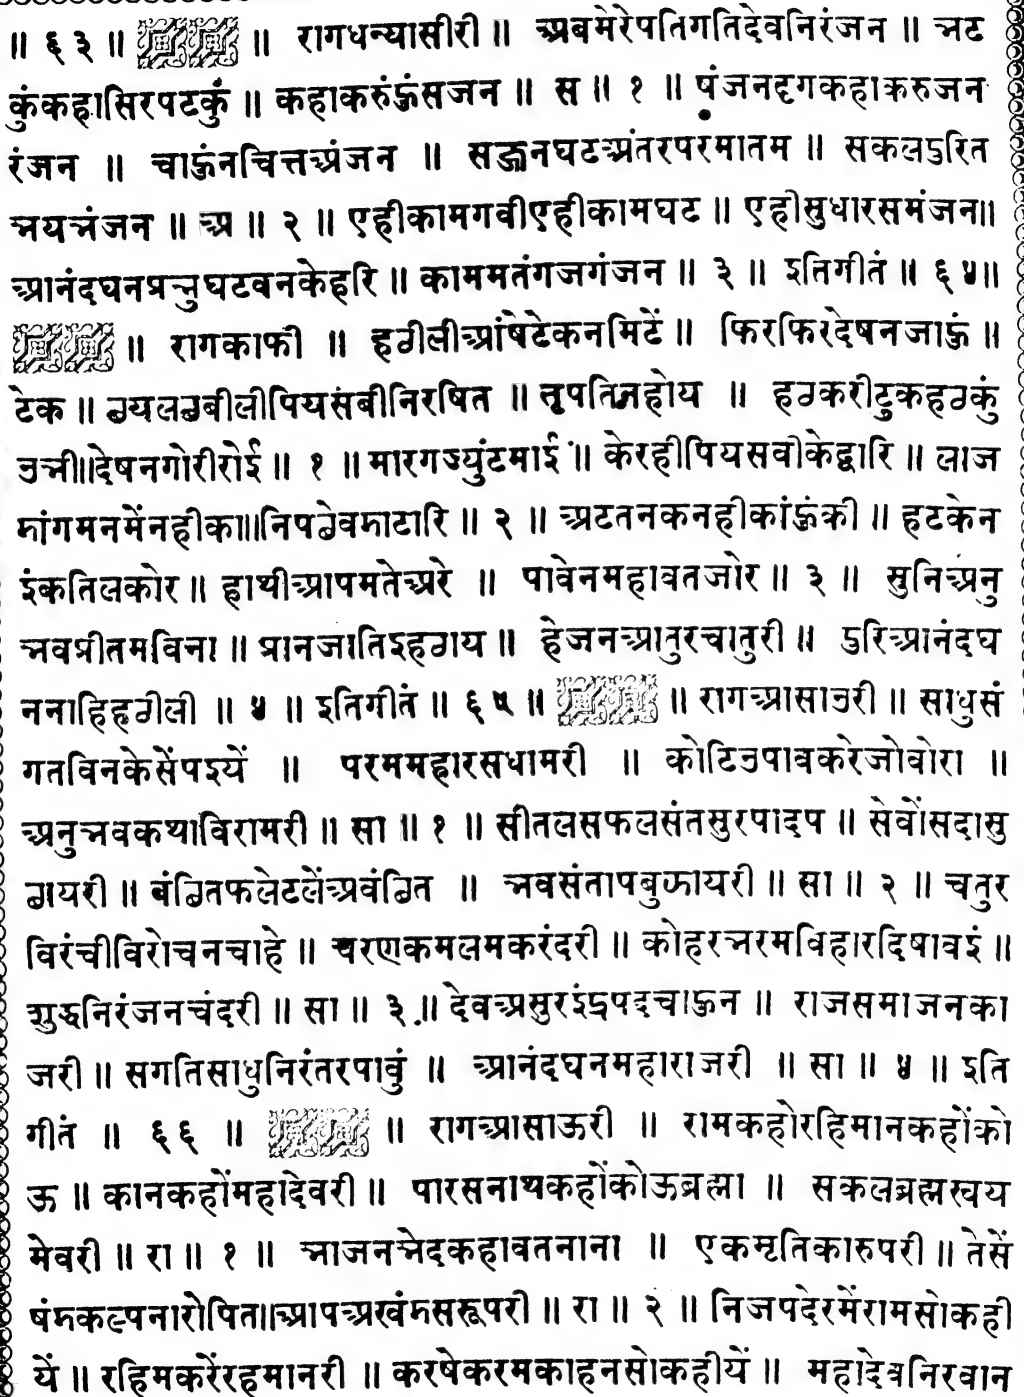 ॥ ६३ ॥ ॥ रागधन्यासीरी ॥ अबमेरेपतिगतिदेवनिरंजन ॥ भट
कुंकहासिरपटकुं ॥ कहाकरुंऊंसजन ॥ स ॥ १ ॥ षंजनदृगकहाकरुजन
रंजन ॥ चाऊंनचित्तअंजन ॥ सज्जनघटअंतरपरमातम ॥ सकलऽरित
भयभंजन ॥ अ ॥ २ ॥ एहीकामगवीएहीकामघट ॥ एहीसुधारसमंजन॥
आनंदघनप्रभुघटवनकेहरि ॥ काममतंगजगंजन ॥ ३ ॥ इतिगीतं ॥ ६४॥
॥ रागकाफी ॥ हठीलीआंषेटेकनमिटें ॥ फिरफिरदेषनजाऊं ॥
टेक ॥ छयलछबीलीपियसंबीनिरषित ॥ तृपतिनहोय ॥ हठकरीटुकहठकुं
उभी॥देषनगोरीरोई ॥ १ ॥ मारगज्युंटमाई ॥ केरहीपियसवीकेद्वारि ॥ लाज
डांगमनमेंनहीका॥निपछेवडाटारि ॥ २ ॥ अटतनकनहीकांऊंकी ॥ हटकेन
इंकतिलकोर ॥ हाथीआपमतेअरे ॥ पावेनमहावतजोर ॥ ३ ॥ सुनिअनु
भवप्रीतमविना ॥ प्रानजातिइहठाय ॥ हेजनआतुरचातुरी ॥ ऽरिआनंदघ
ननाहिहठीली ॥ ४ ॥ इतिगीतं ॥ ६५ ॥ ॥ रागआसाउरी ॥ साधुसं
गतविनकेसेंपइयें ॥ परममहारसधामरी ॥ कोटिउपावकरेजोवोरा ॥
अनुभवकथाविरामरी ॥ सा ॥ १ ॥ सीतलसफलसंतसुरपादप ॥ सेवोंसदासु
छायरी ॥ बंछितफलेटलेंअवंछित ॥ भवसंतापबुझायरी ॥ सा ॥ २ ॥ चतुर
विरंचीविरोचनचाहे ॥ चरणकमलमकरंदरी ॥ कोहरभरमविहारदिषावइं ॥
शुद्धनिरंजनचंदरी ॥ सा ॥ ३ ॥ देवअसुरइंद्रपदचाऊन ॥ राजसमाजनका
जरी ॥ सगतिसाधुनिरंतरपावुं ॥ आनंदघनमहाराजरी ॥ सा ॥ ४ ॥ इति
गीतं ॥ ६६ ॥ ॥ रागआसाऊरी ॥ रामकहोरहिमानकहोंको
ऊ ॥ कानकहोंमहादेवरी ॥ पारसनाथकहोंकोऊब्रह्मा ॥ सकलब्रह्मस्वय
मेवरी ॥ रा ॥ १ ॥ भाजनभेदकहावतनाना ॥ एकमृतिकारुपरी ॥ तेसें
षंडकल्पनारोपित॥आपअखंडसरूपरी ॥ रा ॥ २ ॥ निजपदेरमेंरामसोकही
यें ॥ रहिमकरेंरहमानरी ॥ करषेकरमकाहनसोकहीयें ॥ महादेवनिरवान